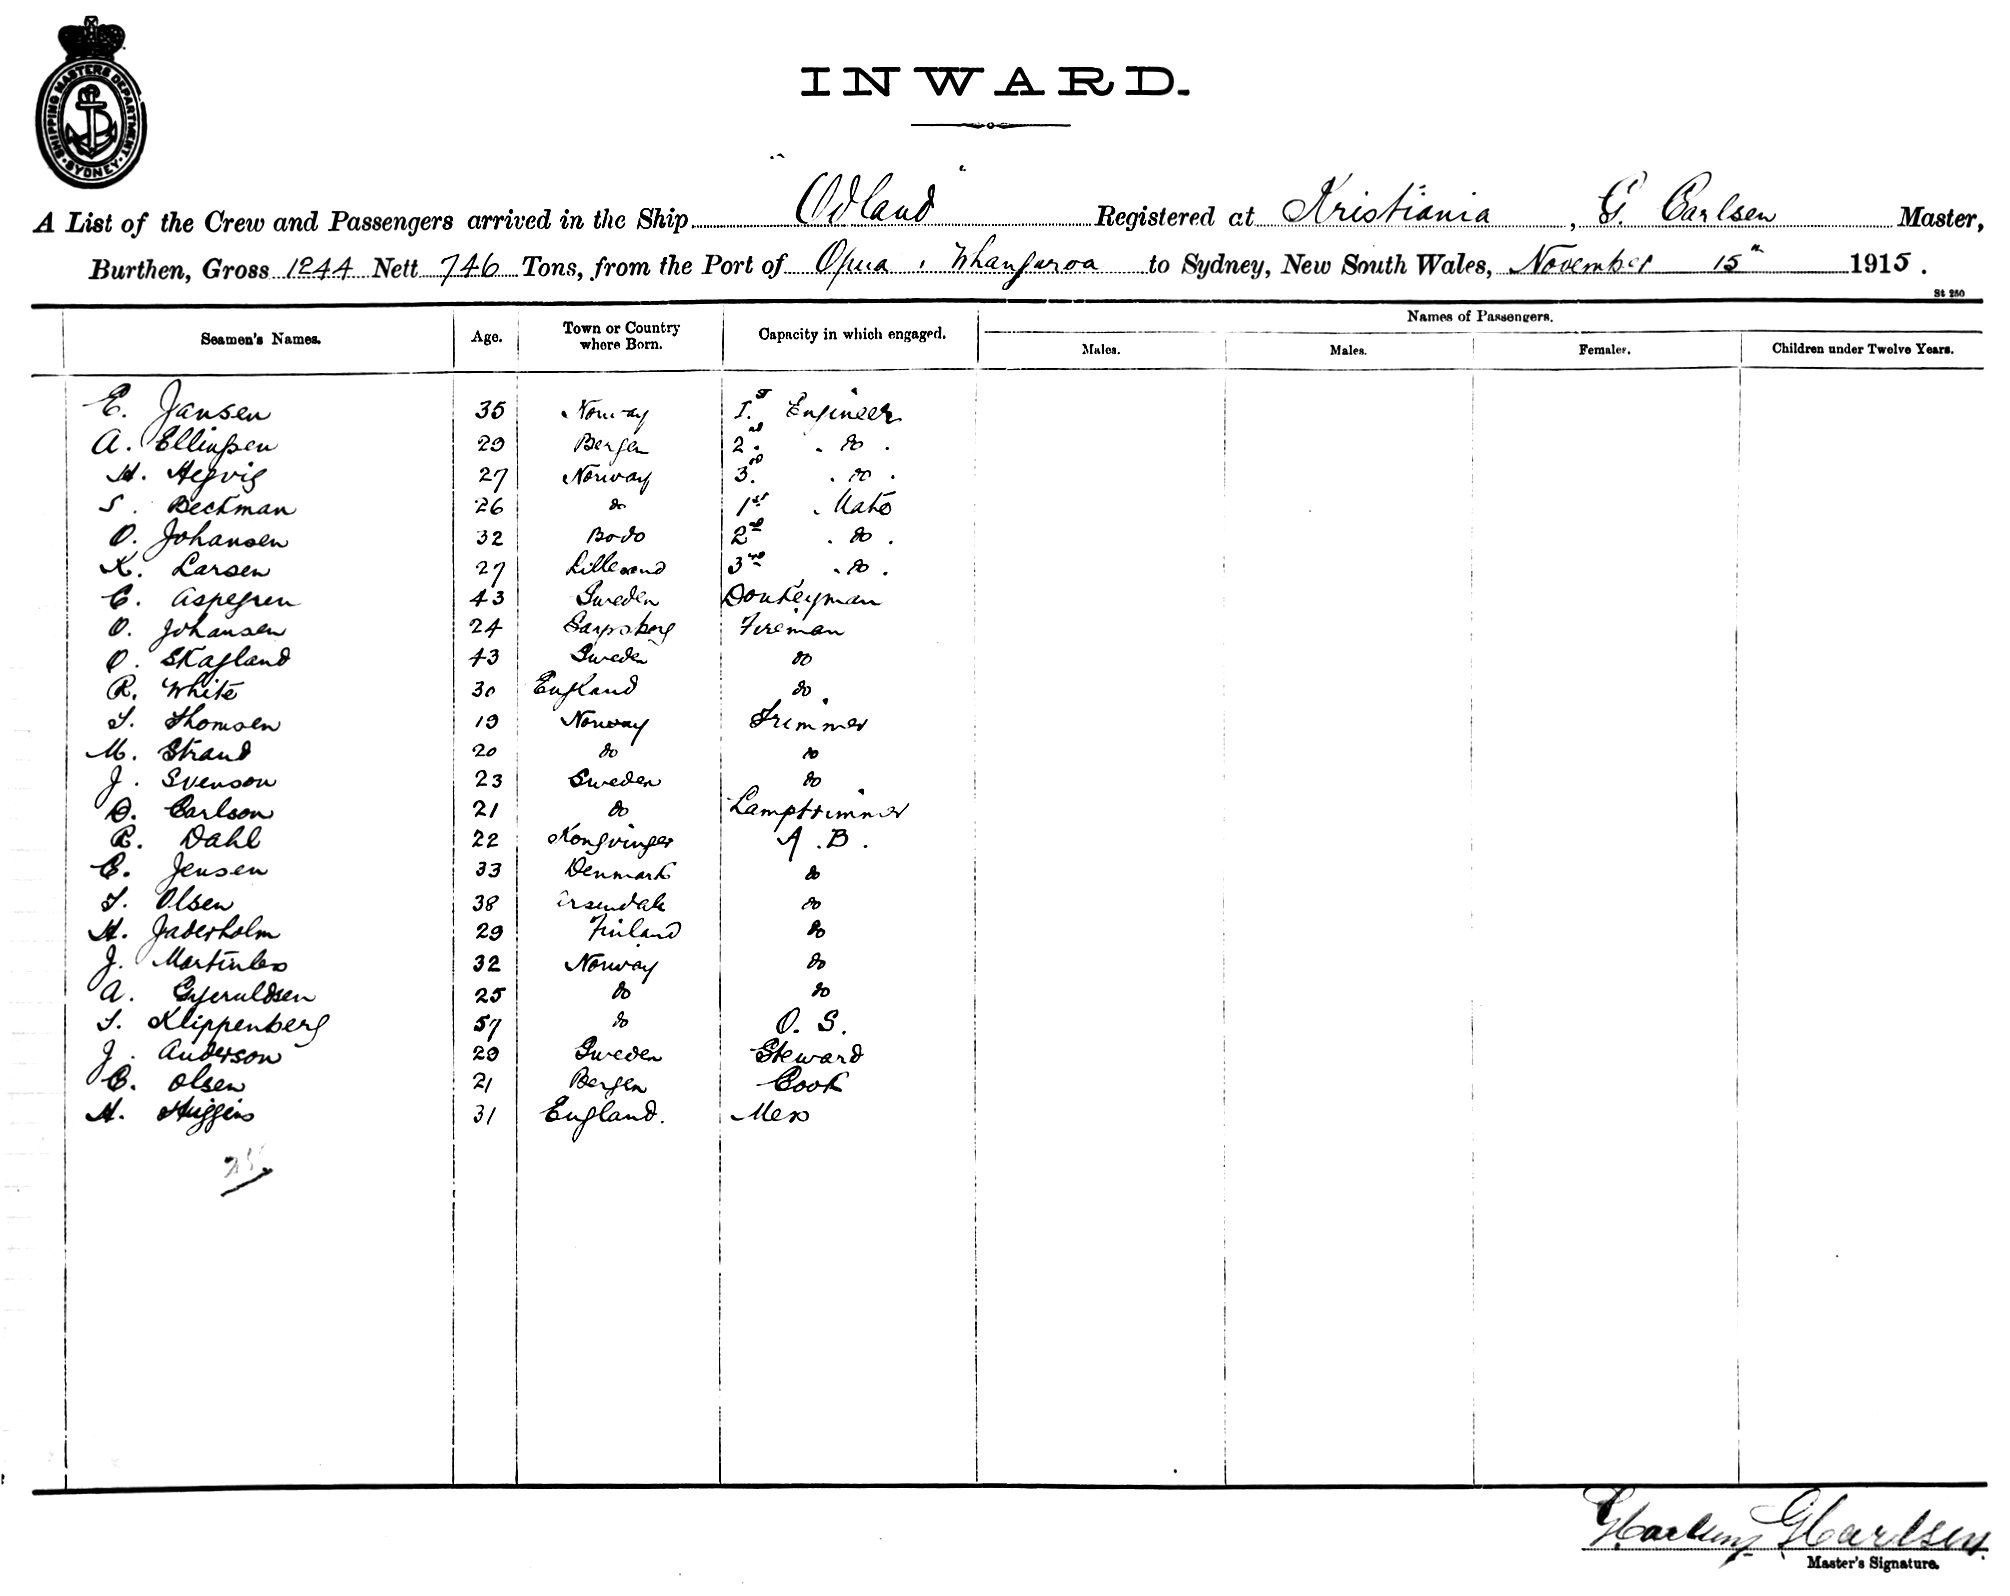 SHIPPING MASTERS DEPARTMENT · SYDNEY ·
INWARD.
A List of the Crew and Passengers arrived in the Ship "Odland" Registered at Kristiania, G. Carlsen Master,
Burthen, Gross 1244 Nett 746 Tons, from the Port of Opua, Whangaroa to Sydney, New South Wales, November 15" 1915.
St 250
Seamen's Names. Age. Town or Country where Born. Capacity in which engaged. Names of Passengers.
Males. Males. Females. Children under Twelve Years.
E. Jansen 35 Norway 1.st Engineer
A. Ellingsen 29 Bergen 2.nd . do .
H. Hegvig 27 Norway 3.rd . do .
S. Beckman 26 do 1st . Mate
O. Johansen 32 Bodo 2nd . do .
K. Larsen 27 Lillesand 3rd . do .
C. Aspegren 43 Sweden Donkeyman
O. Johansen 24 Sarpsborg Fireman
O. Skagland 43 Sweden do
R. White 30 England do
T. Thomsen 19 Norway Trimmer
M. Strand 20 do do
J. Svenson 23 Sweden do
O. Carlson 21 do Lamptrimmer
R. Dahl 22 Kongvinger A.B.
C. Jensen 33 Denmark do
T. Olsen 38 do
H. Jaderholm 29 Finland do
J. 32 Norway do
A. Gjeruldsen 25 do do
T. Klippenberg 57 do O.S.
J. Anderson 29 Sweden Steward
C. Olsen 21 Bergen Cook
H. Huggins 31 England. Mess
G Carlsen
Master's Signature.